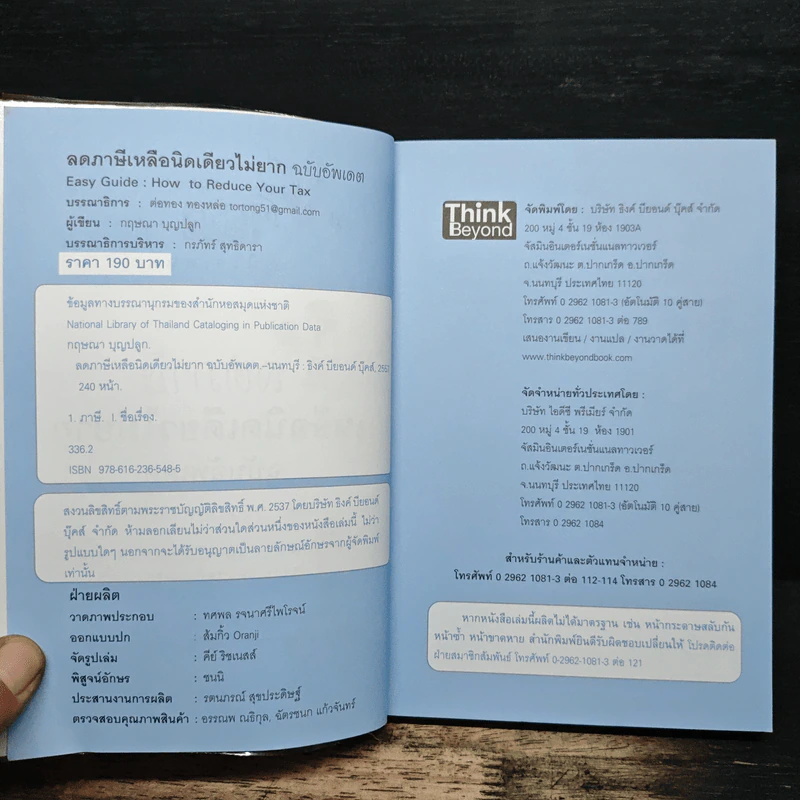 ลดภาษีเหลือนิดเดียวไม่ยาก ฉบับอัพเดต
Easy Guide : How to Reduce Your Tax
บรรณาธิการ : ต่อทอง ทองหล่อ tortong51@gmail.com
ผู้เขียน : กฤษณา บุญปลูก
บรรณาธิการบริหาร : กรภัทร์ สุทธิดารา
ราคา 190 บาท
ข้อมูลทางบรรณานุกรมของสำนักหอสมุดแห่งชาติ
National Library of Thailand Cataloging in Publication Data
กฤษณา บุญปลูก.
ลดภาษีเหลือนิดเดียวไม่ยาก ฉบับอัพเดต.--นนทบุรี : ธิงค์ บียอนด์ บุ๊คส์,
240 หน้า.
1. ภาษี. I. ชื่อเรื่อง.
336.2
ISBN 978-616-236-548-5
สงวนลิขสิทธิ์ตามพระราชบัญญัติลิขสิทธิ์ พ.ศ. 2537 โดยบริษัท ธิงค์ บียอนด์
บุ๊คส์ จำกัด ห้ามลอกเลียนไม่ว่าส่วนใดส่วนหนึ่งของหนังสือเล่มนี้ ไม่ว่า
รูปแบบใดๆ นอกจากจะได้รับอนุญาตเป็นลายลักษณ์อักษรจากผู้จัดพิมพ์
เท่านั้น
ฝ่ายผลิต
วาดภาพประกอบ : ทศพล รจนาศรีไพโรจน์
ออกแบบปก : ส้มกิ้ว Oranji
จัดรูปเล่ม : คีย์ ริชเนสส์
พิสูจน์อักษร : ชนนิ
ประสานงานการผลิต : รตนภรณ์ สุขประดิษฐ์
ตรวจสอบคุณภาพสินค้า : อรรณพ ณธิกุล, ฉัตรชนก แก้วจันทร์
Think
Beyond
จัดพิมพ์โดย : บริษัท ธิงค์ บียอนด์ บุ๊คส์ จำกัด
200 หมู่ 4 ชั้น 19 ห้อง 1903A
จัสมินอินเตอร์เนชั่นแนลทาวเวอร์
ถ.แจ้งวัฒนะ ต.ปากเกร็ด อ.ปากเกร็ด
จ.นนทบุรี ประเทศไทย 11120
โทรศัพท์ 0 2962 1081-3 (อัตโนมัติ 10 คู่สาย)
โทรสาร 0 2962 1081-3 ต่อ 789
เสนองานเขียน / งานแปล / งานวาดได้ที่
www.thinkbeyondbook.com
จัดจำหน่ายทั่วประเทศโดย :
บริษัท ไอดีซี พรีเมียร์ จำกัด
200 หมู่ 4 ชั้น 19 ห้อง 1901
จัสมินอินเตอร์เนชั่นแนลทาวเวอร์
ถ.แจ้งวัฒนะ ต.ปากเกร็ด อ.ปากเกร็ด
จ.นนทบุรี ประเทศไทย 11120
โทรศัพท์ 0 2962 1081-3 (อัตโนมัติ 10 คู่สาย)
โทรสาร 0 2962 1084
สำหรับร้านค้าและตัวแทนจำหน่าย :
โทรศัพท์ 0 2962 1081-3 ต่อ 112-114 โทรสาร 0 2962 1084
หากหนังสือเล่มนี้ผลิตไม่ได้มาตรฐาน เช่น หน้ากระดาษสลับกัน
หน้าซ้ำ หน้าขาดหาย สำนักพิมพ์ยินดีรับผิดชอบเปลี่ยนให้ โปรดติดต่อ
ฝ่ายสมาชิกสัมพันธ์ โทรศัพท์ 0-2962-1081-3 ต่อ 121